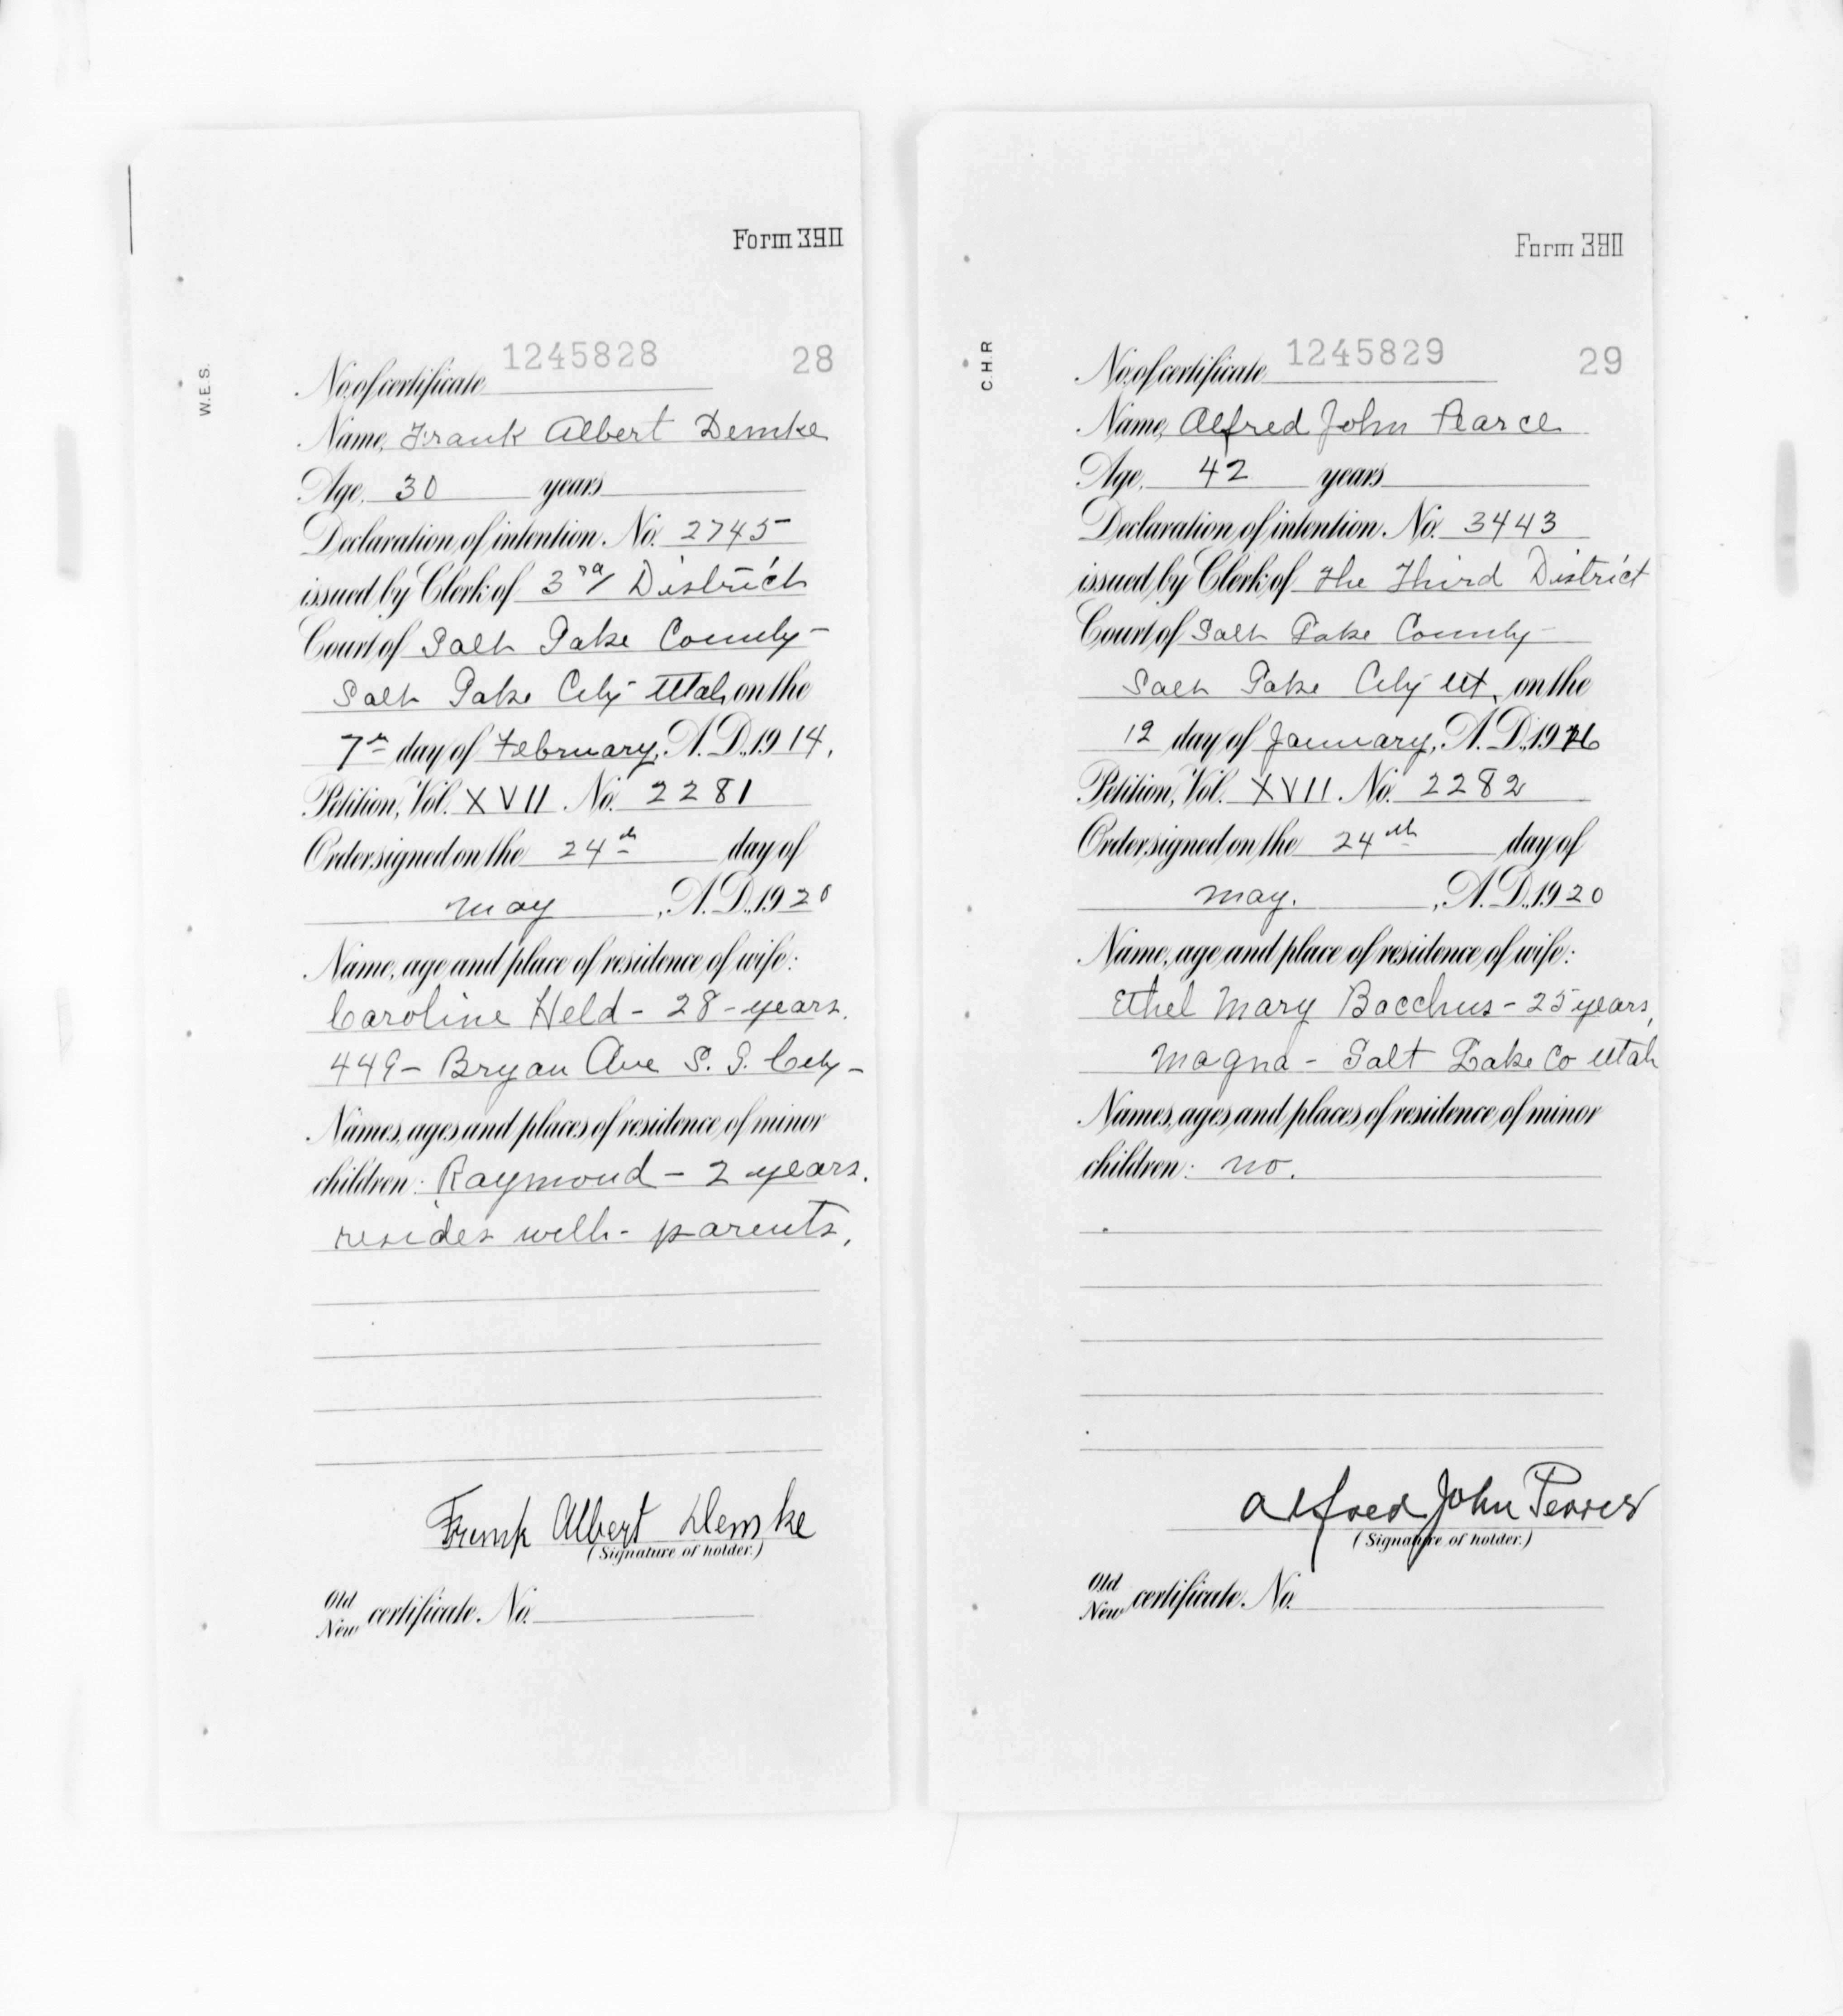 Form 390
W.E.S.
No. of certificate 1245828 28
Name, Frank Albert Demke
Age, 30 years
Declaration of intention, No. 2745
issued by Clerk of 3rd District
Court of Salt Lake County
Salt Lake City Utah, on the
7th day of February, A.D., 1914,
Petition, Vol. XVII No. 2281
Order signed on the 24th day of
May, A.D., 1920
Name, age and place of residence of wife:
Caroline Held - 28 - years.
449 - Bryan Ave S. L. City -
Names, ages and places of residence of minor
children: Raymond - 2 years.
resides with - parents.
Frank Albert Demke
(Signature of holder.)
Old
New certificate No.
Form 390
C.H.R
No. of certificate 1245829 29
Name, Alfred John Pearce
Age, 42 years
Declaration of intention, No. 3443
issued by Clerk of The Third District
Court of Salt Lake County
Salt Lake City Ut, on the
12 day of January, A.D., 1916
Petition, Vol. XVII No. 2282
Order signed on the 24th day of
May. , A.D., 1920
Name, age and place of residence of wife:
Ethel Mary Bacchus - 25 years,
Magna - Salt Lake Co Utah
Names, ages and places of residence of minor
children: no.
Alfred John Pearce
(Signature of holder.)
Old
New certificate No.